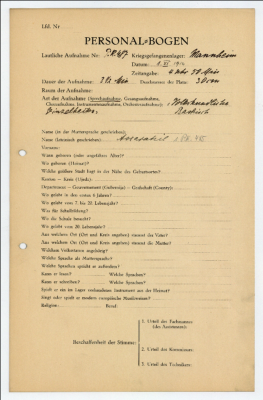 Lfd. Nr.
PERSONAL=BOGEN
Lautliche Aufnahme Nr.: Kriegsgefangenenlager: Mannheim
Datum:
Zeitangabe: 4 Uhr 30 Min
Dauer der Aufnahme: Durchmesser der Platte:
Raum der Aufnahme:
Art der Aufnahme (Sprechaufnahme, Gesangsaufnahme,
Choraufnahme, Instrumentenaufnahme, Orchesteraufnahme):
Name (in der Muttersprache geschrieben):
Name (lateinisch geschrieben):
Vorname:
Wann geboren (oder ungefähres Alter)?
Wo geboren (Heimat)?
Welche größere Stadt liegt in der Nähe des Geburtsortes?
Kanton — Kreis (Ujedz):
Departement — Gouvernement (Gubernija) — Grafschaft (County):
Wo gelebt in den ersten 6 Jahren?
Wo gelebt vom 7. bis 20. Lebensjahr?
Was für Schulbildung?
Wo die Schule besucht?
Wo gelebt vom 20. Lebensjahr?
Aus welchem Ort (Ort und Kreis angeben) stammt der Vater?
Aus welchem Ort (Ort und Kreis angeben) stammt die Mutter?
Welchem Volksstamm angehörig?
Welche Sprache als Muttersprache?
Welche Sprachen spricht er außerdem?
Kann er lesen? Welche Sprachen?
Kann er schreiben? Welche Sprachen?
Spielt er ein im Lager vorhandenes Instrument aus der Heimat?
Singt oder spielt er modern europäische Musikweisen?
Religion: Beruf:
Beschaffenheit der Stimme:
1. Urteil des Fachmannes
(des Assistenten):
2. Urteil des Kommissars:
3. Urteil des Technikers: